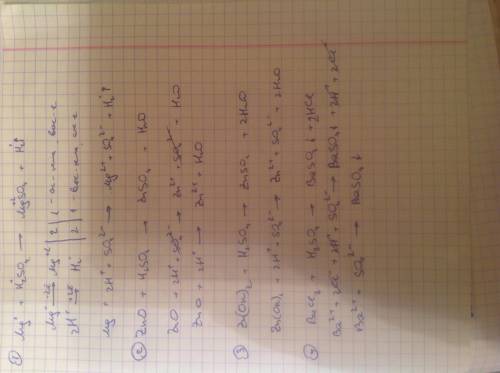 ① Mg⁰ + H₂⁺SO₄ → Mg⁺²SO₄ + H₂⁰↑
Mg⁰ -2e → Mg⁺² | 2 | 1 -
2H⁺ +2e → H₂⁰ | 2 | 1 -
Mg⁰ + 2H⁺ + SO₄²⁻ → Mg²⁺ + SO₄²⁻ + H₂⁰↑
② ZnO + H₂SO₄ → ZnSO₄ + H₂O
ZnO + 2H⁺ + SO₄²⁻ → Zn²⁺ + SO₄²⁻ + H₂O
ZnO + 2H⁺ → Zn²⁺ + H₂O
③ Zn(OH)₂ + H₂SO₄ → ZnSO₄ 2H₂O
Zn(OH)₂ + 2H⁺ + SO₄²⁻ → Zn²⁺ + SO₄²⁻ + 2H₂O
④ BaCl₂ + H₂SO₄ → BaSO₄↓ + 2HCl
Ba²⁺ + 2Cl⁻ + 2H⁺ + SO₄²⁻ → BaSO₄↓ + 2H⁺ + 2Cl⁻
Ba²⁺ + SO₄²⁻ → BaSO₄↓